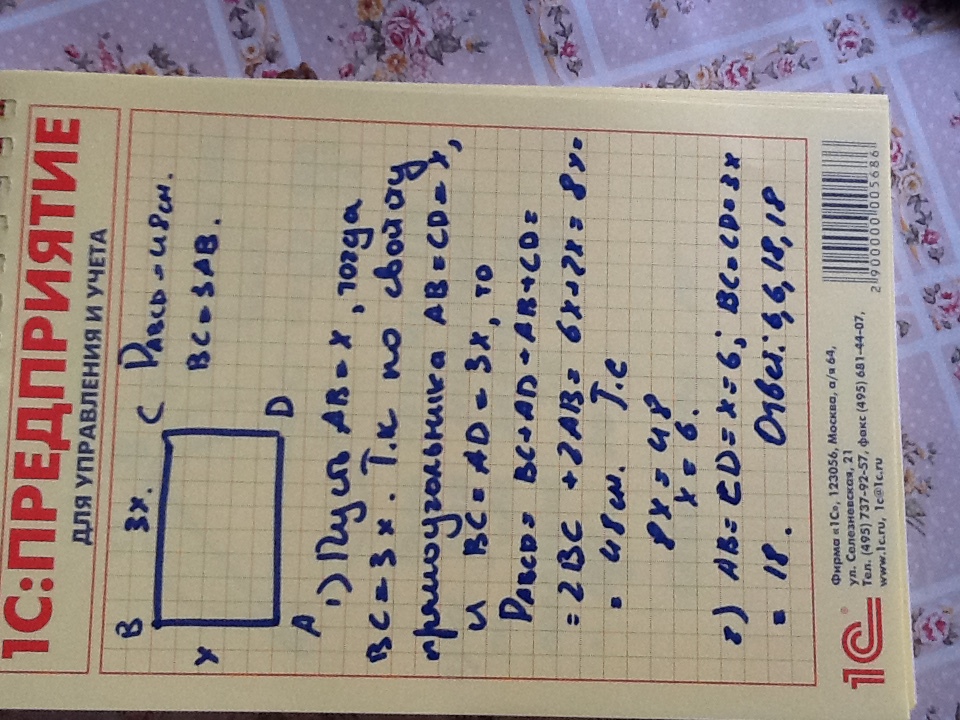 1С:ПРЕДПРИЯТИЕ
ДЛЯ УПРАВЛЕНИЯ И УЧЕТА
B 3x. C PABCD = 48 см.
x BC = 3AB.
A D
1) Пусть AB = x, тогда
BC = 3x. Т.к по свойству
прямоугольника AB = CD = x,
и BC = AD = 3x, то
PABCD = BC + AD + AB + CD =
= 2BC + 2AB = 6x + 2x = 8x =
= 48 см. Т.е
8x = 48
x = 6.
2) AB = CD = x = 6; BC = CD = 3x
= 18. Ответ: 6,6,18,18
1С®
Фирма «1С», 123056, Москва, а/я 64,
ул. Селезневская, 21
Тел. (495) 737-92-57, факс (495) 681-44-07,
www.1c.ru, 1c@1c.ru
2 900000 005686